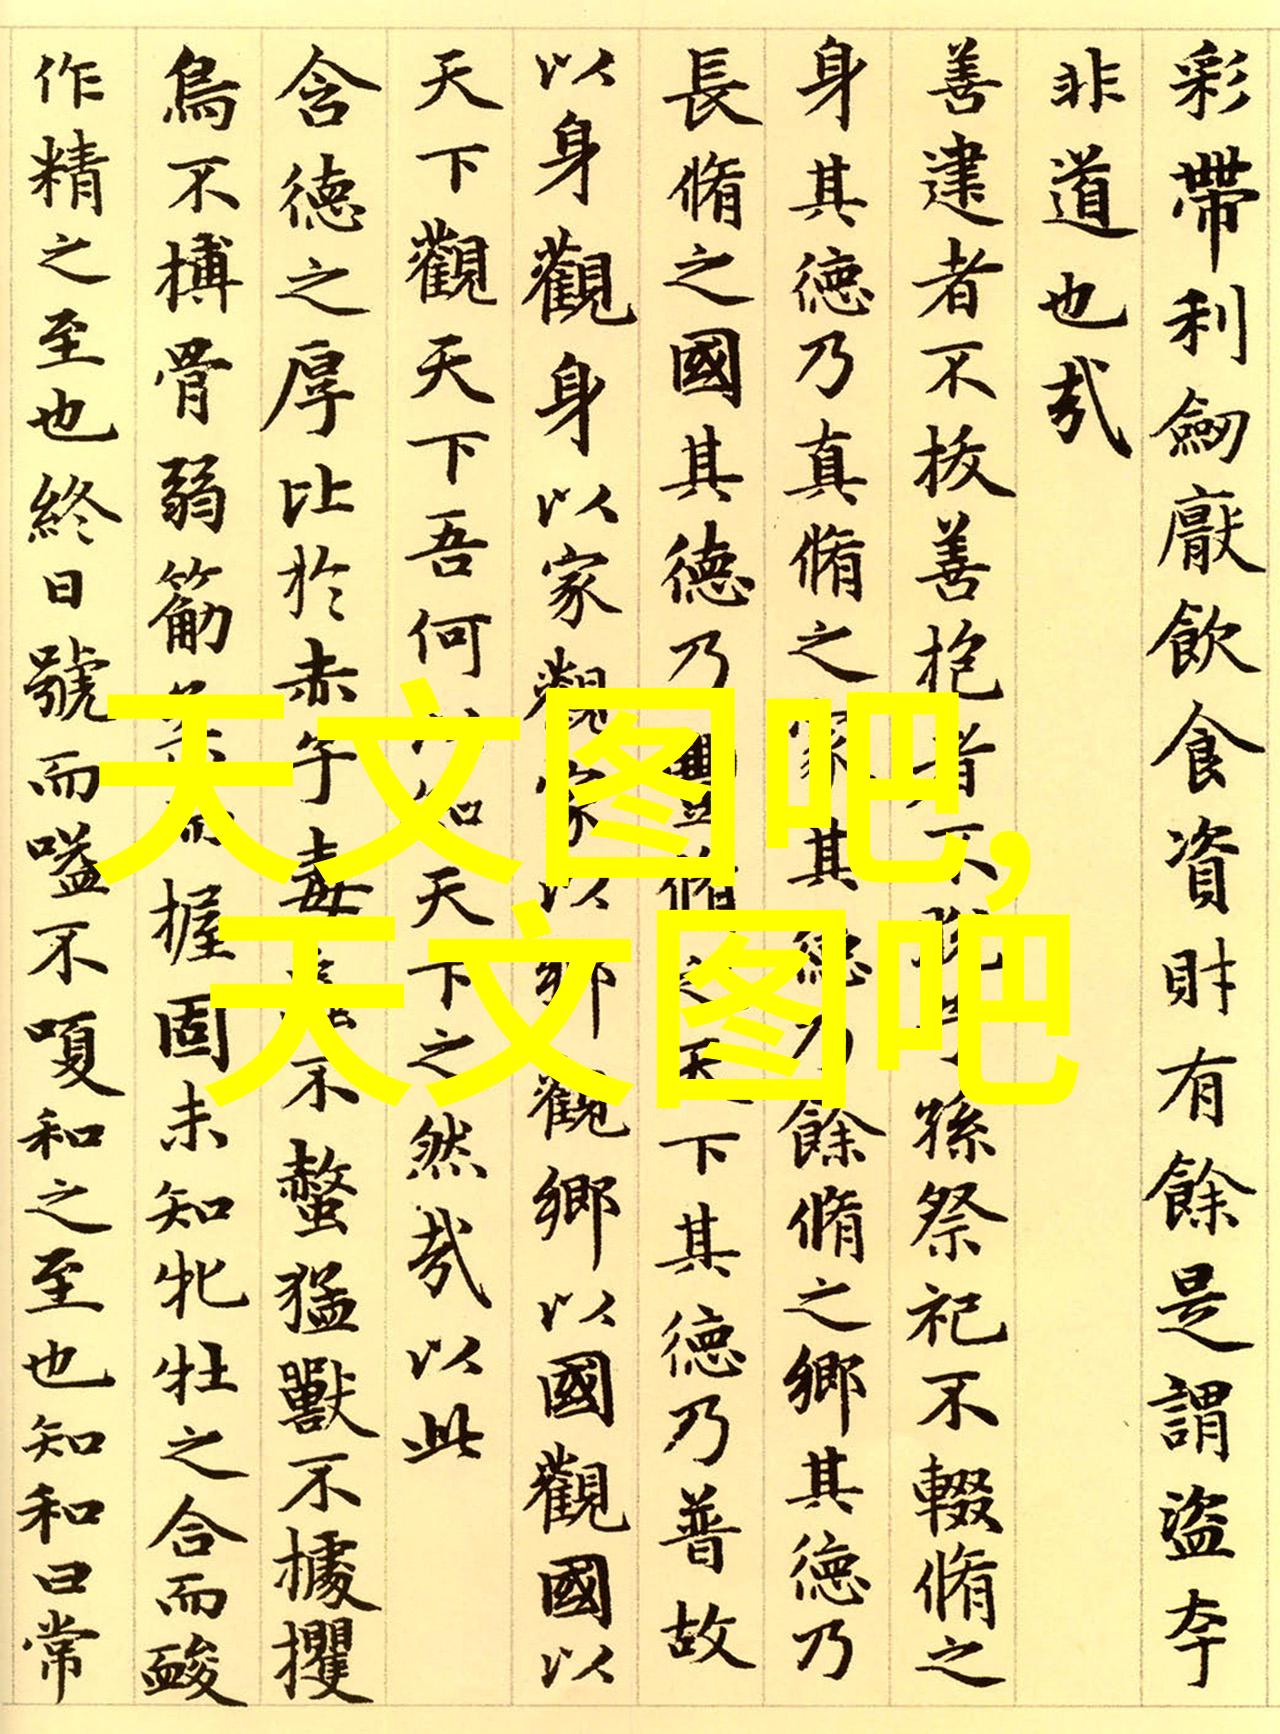 彩帶利劒厭飲食資財有餘是謂盜夸
非道也哉
善建者不拔善抱者不脫子孫祭祀不輟脩之
身其德乃真脩之家其德乃餘脩之鄉其德乃
長脩之國其德乃豐脩之天下其德乃普故
以身觀身以家觀家以鄉觀鄉以國觀國以
天下觀天下吾何以知天下之然哉以此
含德之厚比於赤子毒蟲不螫猛獸不據攫
鳥不搏骨弱筋柔而握固未知牝牡之合而䘒
作精之至也終日號而嗌不嗄和之至也知和曰常
天文图吧,
天文图吧